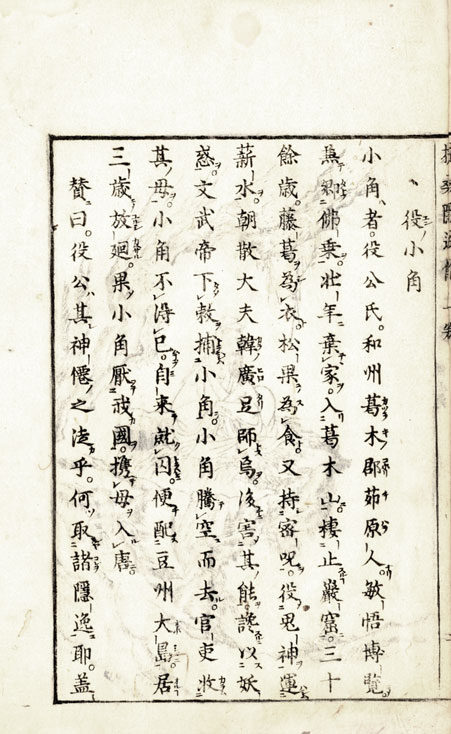 役小角
小角者。役公氏。和州葛木郡茆原人。敏悟博覽
兼鄉佛乗。壮年棄家。入葛木山棲止巖窟。三十
餘歳。藤葛為衣。松果為食。又持密呪。役鬼神運
薪水。朝散大夫韓廣足師焉。後害其能。讒以妖
惑。文武帝下敕捕小角。小角騰空而去。官吏收
其母。小角不得已。自来就囚。便配豆州大島。居
三歳放廻。果小角厭我國。携母入唐
賛曰。役公。其神僊之流乎。何取諸隱逸耶。蓋